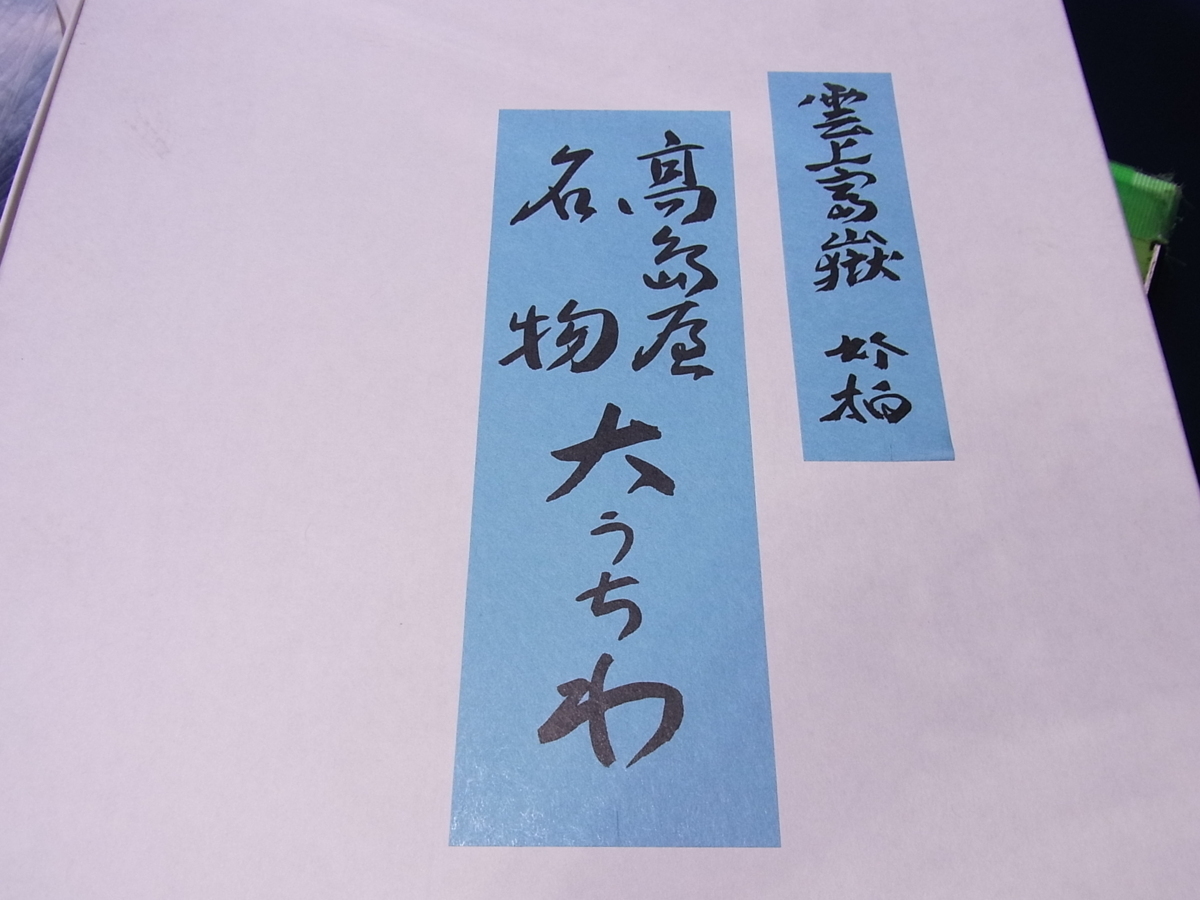 雲上富嶽 柏
高島屋
名物
大うちわ